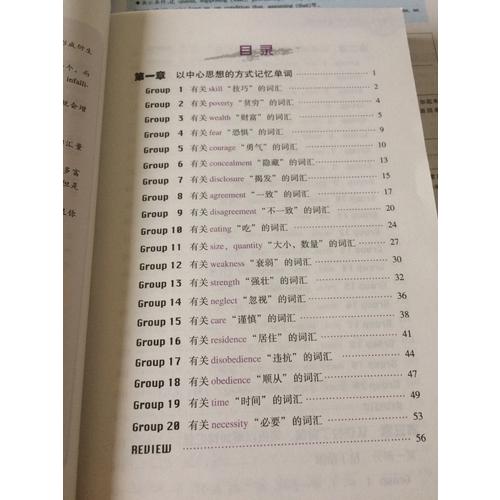 目录
第一章 以中心思想的方式记忆单词 1
Group 1 有关skill“技巧”的词汇 2
Group 2 有关poverty“贫穷”的词汇 4
Group 3 有关wealth“财富”的词汇 5
Group 4 有关fear“恐惧”的词汇 9
Group 5 有关courage“勇气”的词汇 10
Group 6 有关concealment“隐藏”的词汇 13
Group 7 有关disclosure“揭发”的词汇 15
Group 8 有关agreement“一致”的词汇 17
Group 9 有关disagreement“不一致”的词汇 20
Group 10 有关eating“吃”的词汇 24
Group 11 有关size, quantity“大小、数量”的词汇 27
Group 12 有关weakness“衰弱”的词汇 30
Group 13 有关strength“强壮”的词汇 32
Group 14 有关neglect“忽视”的词汇 36
Group 15 有关care“谨慎”的词汇 38
Group 16 有关residence“居住”的词汇 41
Group 17 有关disobedience“违抗”的词汇 44
Group 18 有关obedience“顺从”的词汇 47
Group 19 有关time“时间”的词汇 49
Group 20 有关necessity“必要”的词汇 53
REVIEW 56